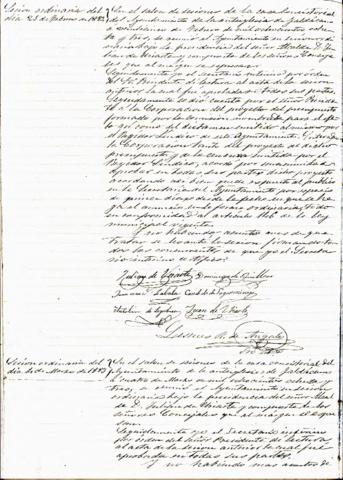 Sesion ordinaria del
dia 25 de Febrero de 1883
En el salon de sesiones de la casa consistorial
del Ayuntamiento de la anteiglesia de
a veinticinco de Febrero de mil ochocientos ochenta
y tres, se reunió el Ayuntamiento en sesion ordinaria
bajo la presidencia del señor Alcalde D.
de Uriarte y compuesto de los señores Conceja
les que al margen se expresan.
Seguidamente yo el secretario interino por orden
del Sr. Presidente di lectura al acta de la sesion
anterior la cual fue aprobada en todas sus partes.
Seguidamente se dio cuenta por el señor Presiden
te a la Corporacion del proyecto del presupuesto
formado por la comision nombrada para el efec
to asi como del dictamen emitido al mismo por
el Regidor Sindico de este Ayuntamiento. Enterada
la Corporacion tanto del proyecto de dicho
presupuesto y de la censura emitida por el
Regidor Sindico, acordó por unanimidad
aprobar en todas sus partes dicho proyecto
acordando asi bien quede expuesto al publico
en la Secretaria del Ayuntamiento por espacio
de quince dias desde la fecha en que se ha
ga el anuncio, en la forma ordinaria; todo
en conformidad al articulo 146 de la ley
municipal vigente.
Y no habiendo asuntos mas de que
tratar se levantó la sesion, firmando to
dos los concurrentes de que yo el Secreta
rio interino certifico.
Julian de Uriarte
Juan de Uriarte
Sesion ordinaria del
dia 4 de Marzo de 1883
En el salon de sesiones de la casa consistorial del
Ayuntamiento de la anteiglesia de
a cuatro de Marzo de mil ochocientos ochenta y
tres, se reunió el Ayuntamiento en sesion
ordinaria bajo la presidencia del señor Alcal
de D. Julian de Uriarte y compuesto de los
señores Concejales que al margen se expre
san.
Seguidamente yo el Secretario interino
por orden del señor Presidente di lectura
al acta de la sesion anterior la cual fue
aprobada en todas sus partes.
Y no habiendo mas asuntos de